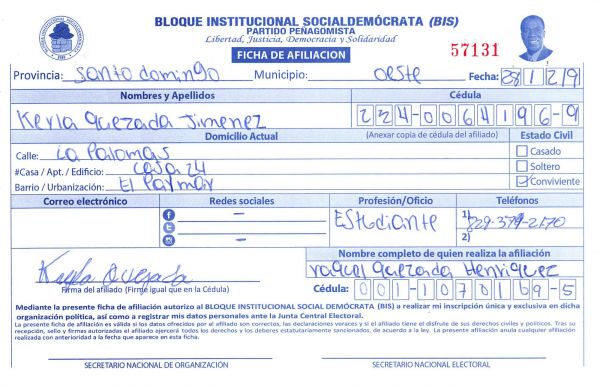 BLOQUE INSTITUCIONAL SOCIALDEMÓCRATA (BIS)
PARTIDO PEÑAGOMISTA
Libertad, Justicia, Democracia y Solidaridad
FICHA DE AFILIACION
57131
Provincia: Santo domingo Municipio: oeste Fecha: 28/12/9
Nombres y Apellidos Cédula
Keyla Quezada Jimenez 224-0064196-9
Domicilio Actual (Anexar copia de cédula del afiliado) Estado Civil
Calle: La Palomas Casado
#Casa / Apt. / Edificio: casa 24 Soltero
Barrio / Urbanización: El Palmar Conviviente
Correo electrónico Redes sociales Profesión/Oficio Teléfonos
– EStudiante 1) 829-379-2170
– 2)
Nombre completo de quien realiza la afiliación
Keyla Quezada raquel quezada Henriquez
Firma del afiliado (Firme igual que en la Cédula) Cédula: 001-1070169-5
Mediante la presente ficha de afiliación autorizo al BLOQUE INSTITUCIONAL SOCIAL DEMÓCRATA (BIS) a realizar mi inscripción única y exclusiva en dicha
organización política, así como a registrar mis datos personales ante la Junta Central Electoral.
La presente ficha de afiliación es válida si los datos ofrecidos por el afiliado son correctos, las declaraciones veraces y si el afiliado tiene el disfrute de sus derechos civiles y políticos. Tras su
recepción, sello y firmas autorizadas el afiliado ejercerá todos los derechos y los deberes estatutariamente sancionados, de acuerdo a la ley. La presente afiliación anula cualquier afiliación
realizada con anterioridad a la fecha que aparece en esta ficha.
SECRETARIO NACIONAL DE ORGANIZACIÓN SECRETARIO NACIONAL ELECTORAL